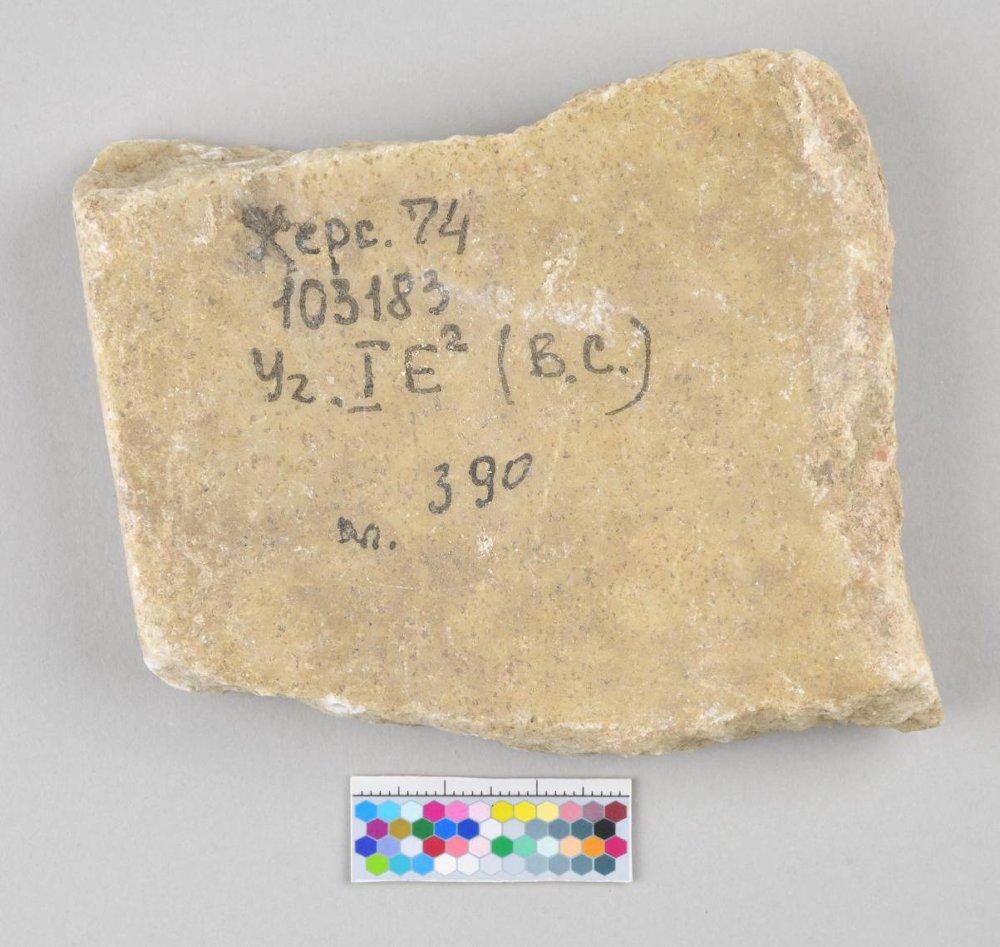 Херс. 74
103183
Уг. I E² (В.С.)
390